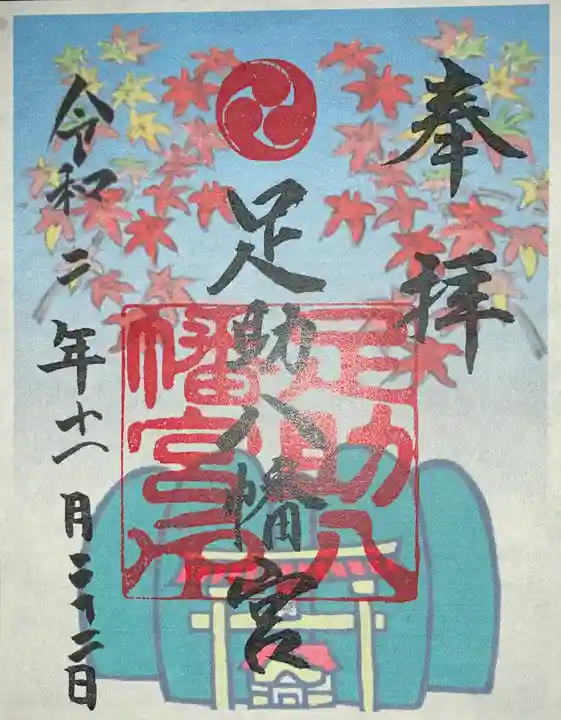 奉拝
足助八幡宮
足助八幡宮
令和二年十一月二十二日